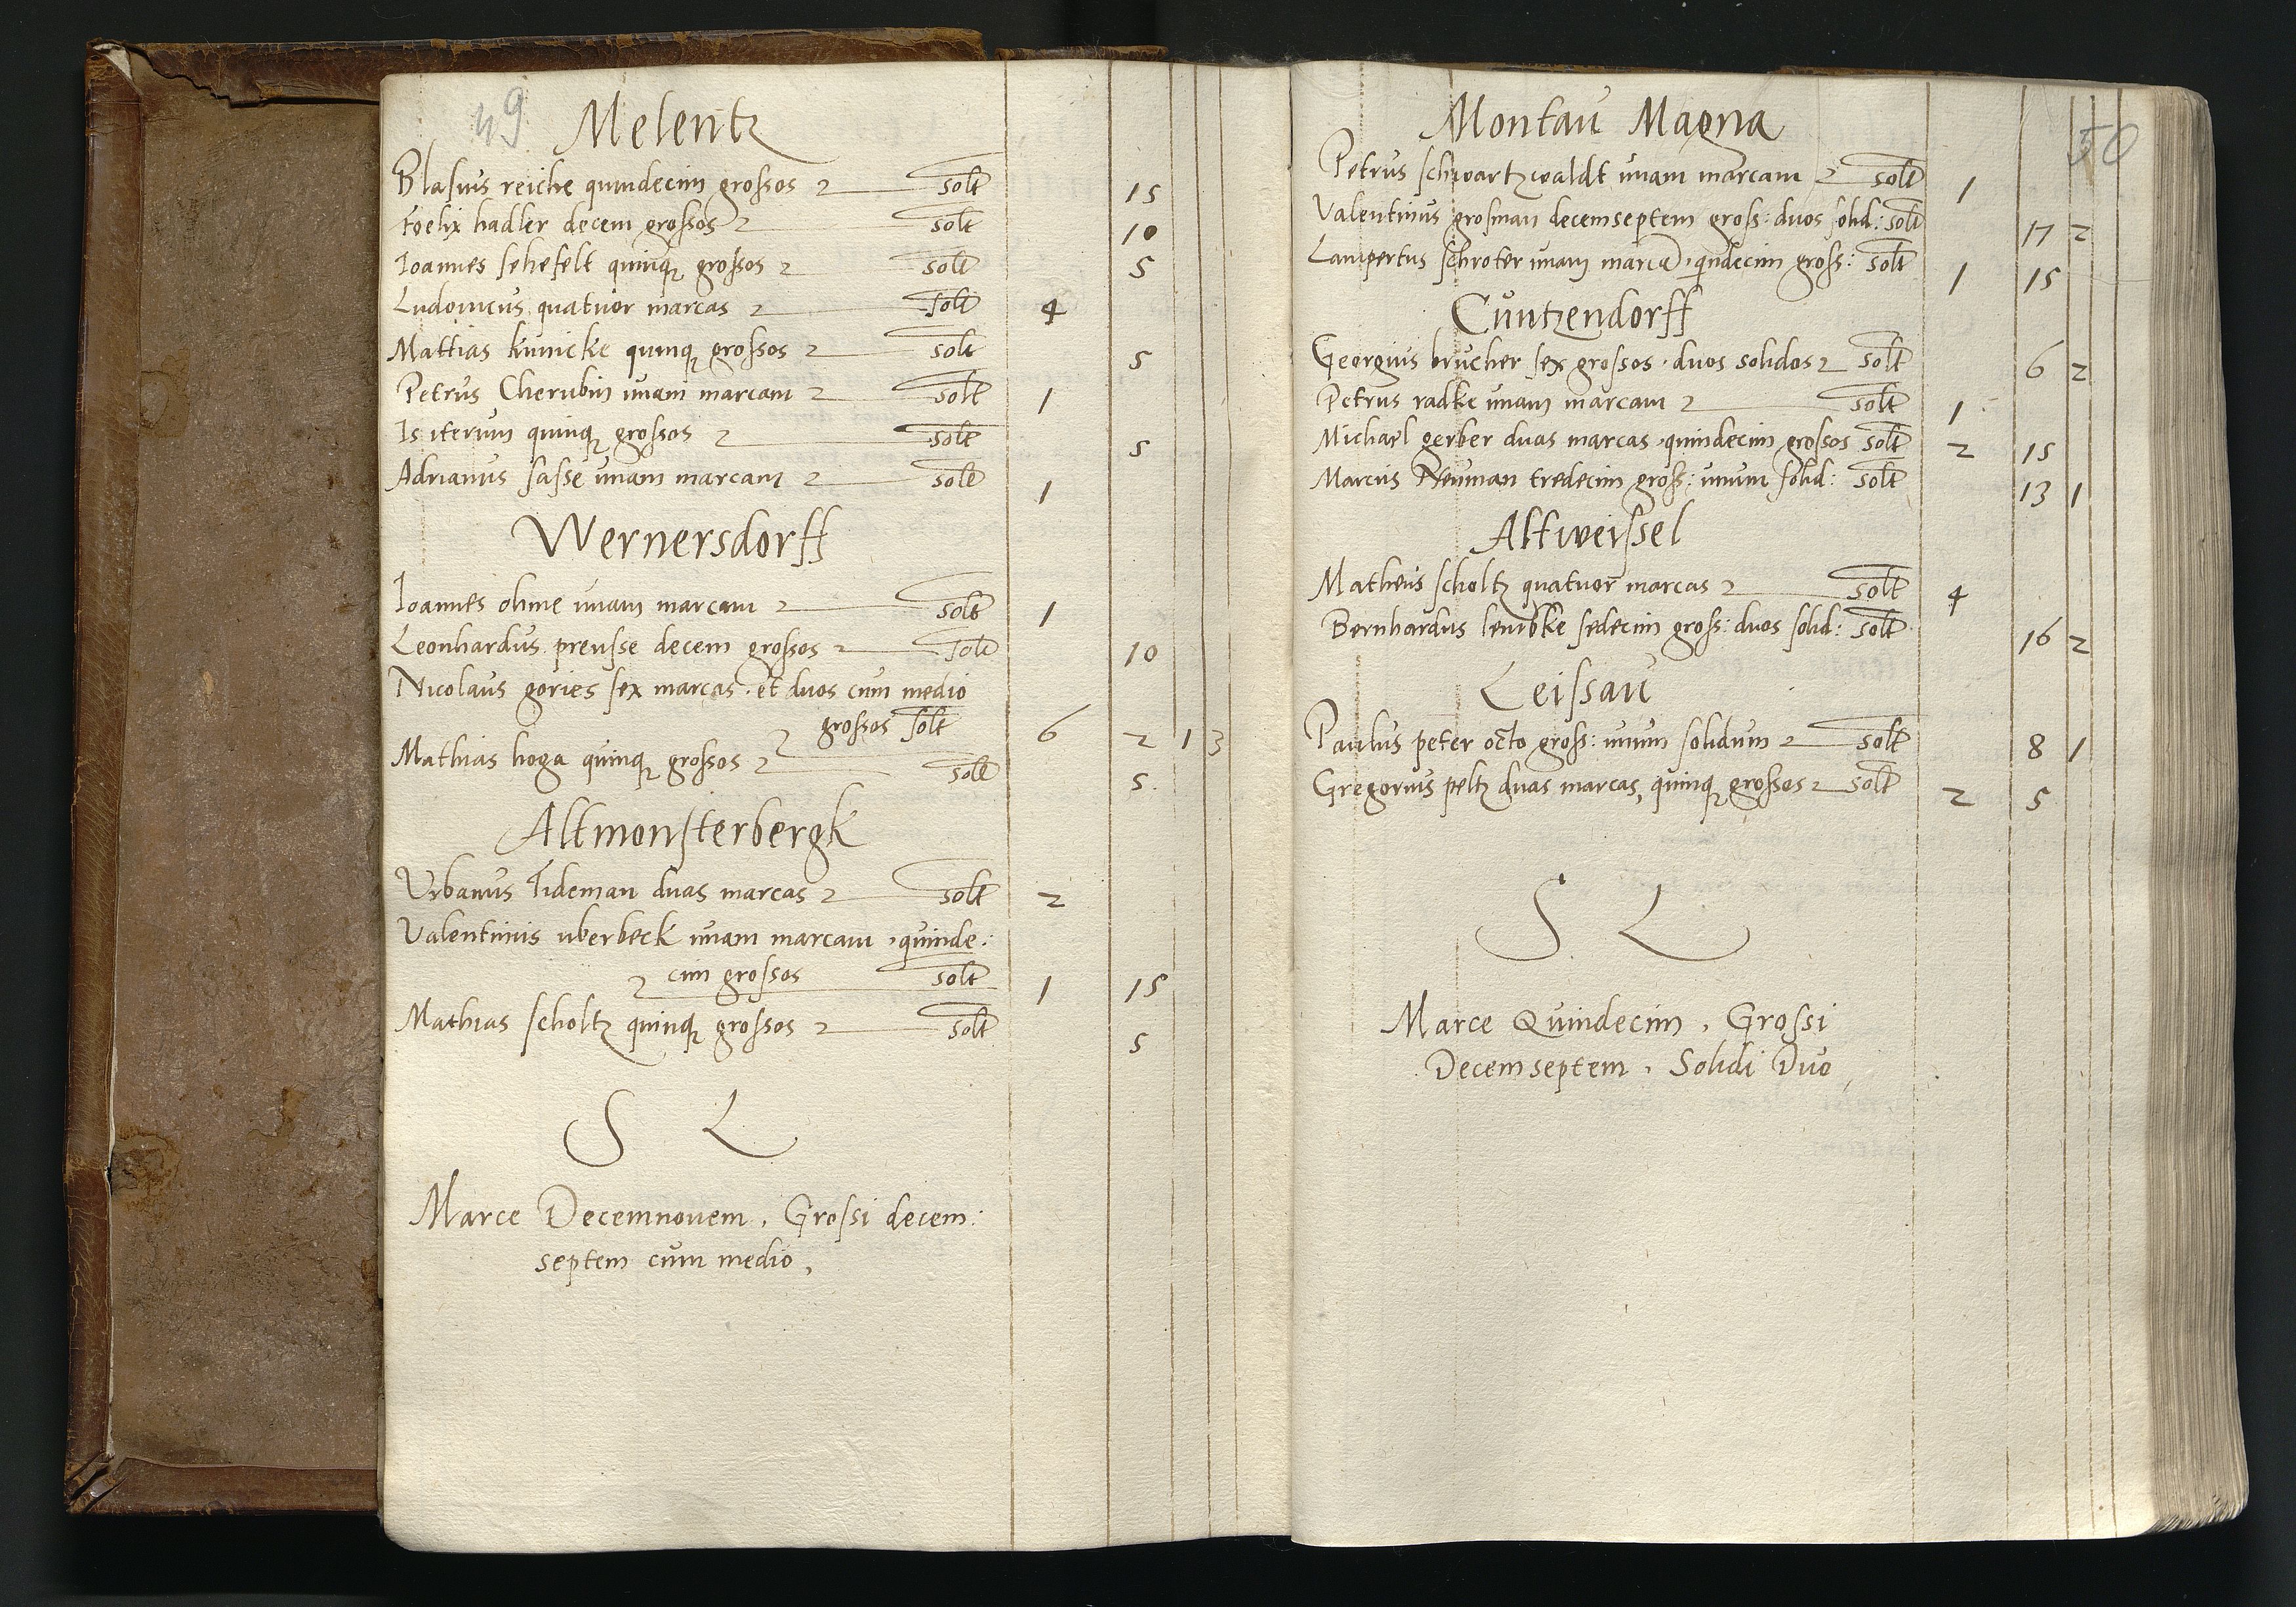 49
Melentz
Blasius reiche quindecim grossos solt 15
Foelix hadler decem grossos solt 10
Ioannes sehefelt quinq grossos solt 5
Ludovicus quatuor marcas solt 4
Mattias kunicke quinq grossos solt 5
Petrus Cherubin unam marcam solt 1
Is iterum quinq grossos solt 5
Adrianus sasse unam marcam solt 1
Wernersdorff
Ioannes ohme unam marcam solt 1
Leonhardus preusse decem grossos solt 10
Nicolaus gories sex marcas et duos cum medio
grossos solt 6 2 1 3
Mathias hoga quinq grossos solt 5
Altmonsterbergk
Urbanus Tideman duas marcas solt 2
Valentinus uberbeck unam marcam, quinde:
cim grossos solt 1 15
Mathias scholtz quinq grossos solt 5
S L
Marce Decemnouem, Grossi decem:
septem cum medio,
50
Montau Magna
Petrus schwartzwaldt unam marcam solt 1
Valentinus grosman decemseptem gross: duos solid: solt 17 2
Lampertus schroter unam marcã, qindecim gross: solt 1 15
Cuntzendorff
Georgius brucher sex grossos, duos solidos solt 6 2
Petrus radke unam marcam solt 1
Michael gerber duas marcas, quindecim grossos solt 2 15
Marcus Neuman tredecim gross: unum solid: solt 13 1
Altweissel
Matheus scholtz quatuor marcas solt 4
Bernhardus lembke sedecim gross: duos solid: solt 16 2
Leissau
Paulus peter octo gross: unum solidum solt 8 1
Gregorius peltz duas marcas, quinq grossos solt 2 5
S L
Marce Quindecim, Grossi
Decemseptem, Solidi Duo